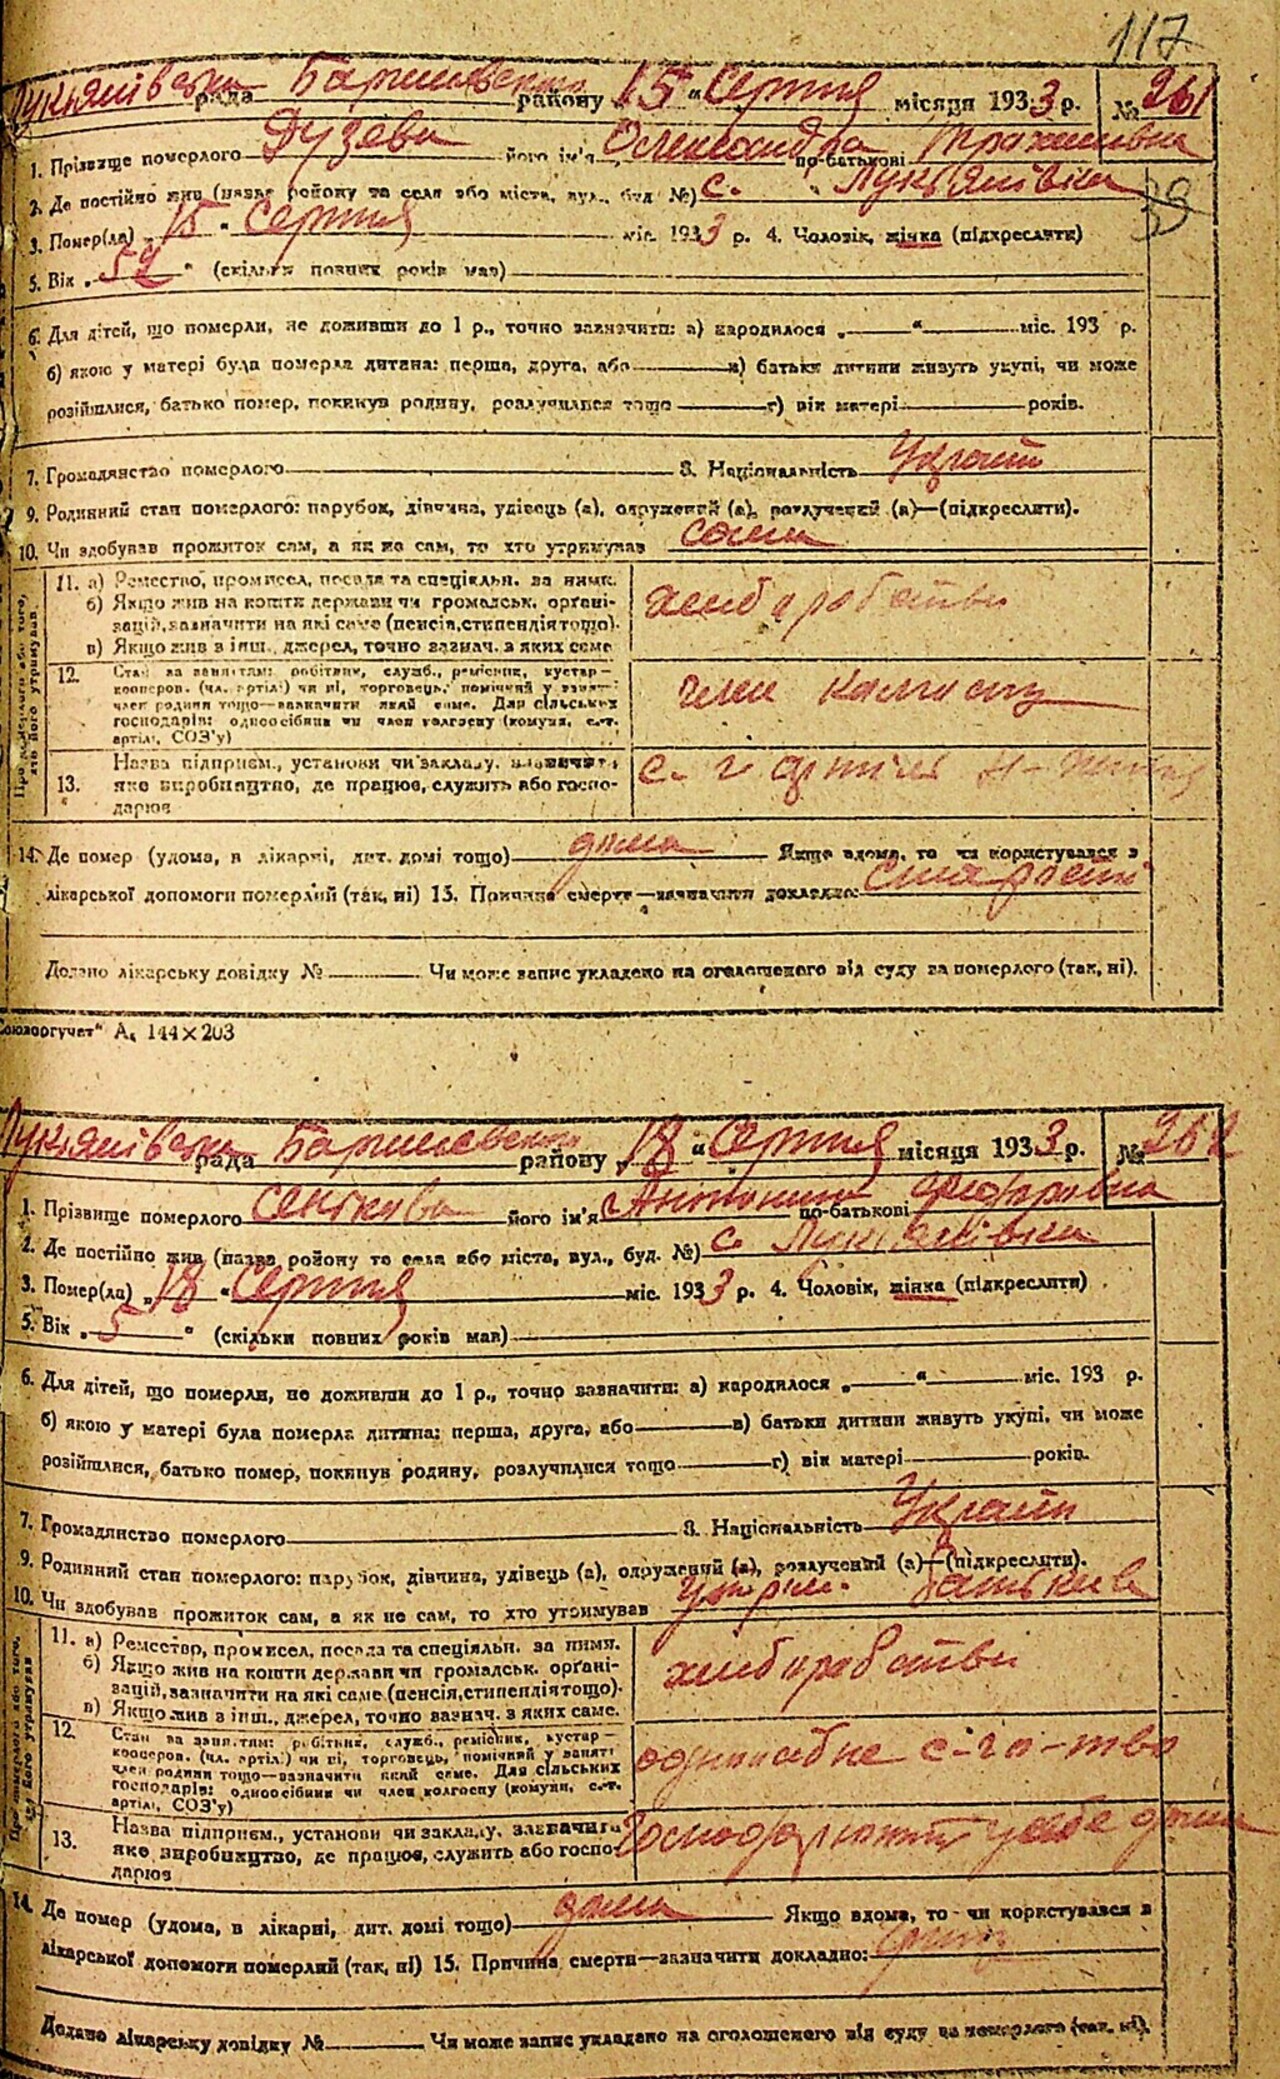 117
Лукьянівска рада Баришевского району 15 „ Серпня місяця 1933 р. № 261
1. Прізвище померлого його ім'я Олександра по-батькові
2. Де постійно жив (назва району та села або міста, вул., буд №) с. Лукьянівка
39
3. Помер(ла) „ 15 " Серпня міс. 1933 р. 4. Чоловік, жінка (підкреслити)
5. Вік „ 59 " (скільки повних років мав)
6. Для дітей, що померли, не доживши до 1 р., точно зазначити: а) народилося „ " міс. 193 р.
б) якою у матері була померла дитина: перша, друга, або в) батьки дитини живуть укупі, чи може
розійшлися, батько помер, покинув родину, розлучилися тощо г) вік матері років.
7. Громадянство померлого 8. Національність Україн
9. Родинний стан померлого: парубок, дівчина, удівець (а), одружений (а), розлучений (а)—(підкреслити).
10. Чи здобував прожиток сам, а як не сам, то хто утримував сама
Про померлого або того, хто його утримував
11. а) Ремество, промисел, посада та спеціяльн. за ними.
б) Якщо жив на кошти держави чи громадськ. органі-
зацій, зазначити на які саме (пенсія, стипендія тощо).
в) Якщо жив з інш. джерел, точно зазнач. з яких саме
хлеборобство
12. Стан за заняттям: робітник, служб., ремісник, кустар—
кооперов. (чл. артілі) чи ні, торговець, помічний у занят.
член родини тощо—зазначити який саме. Для сільських
господарів: одноосібник чи член колгоспу (комуни, с.-г.
артілі, СОЗ'у)
член колгоспу
13. Назва підприєм., установи чи закладу, зазначити
яке виробництво, де працює, служить або госпо-
дарює
с. г артілі
14. Де помер (удома, в лікарні, дит. домі тощо) дома Якщо вдома, то чи користувався з
лікарської допомоги померлий (так, ні) 15. Причина смерти—зазначити докладно: старости
Додано лікарську довідку № Чи може запис укладено на оголошеного від суду за померлого (так, ні).
Союзоргучет" А, 144×203
Лукьянівска рада Баришевского району „ 18 " Серпня місяця 1933 р. № 262
1. Прізвище померлого його ім'я Антонина по-батькові Федоровна
2. Де постійно жив (назва району та села або міста, вул., буд. №) с. Лукьянівка
3. Помер(ла) „ 18 " Серпня міс. 1933 р. 4. Чоловік, жінка (підкреслити)
5. Вік „ 5 " (скільки повних років мав)
6. Для дітей, що померли, не доживши до 1 р., точно зазначити: а) народилося „ " міс. 193 р.
б) якою у матері була померла дитина: перша, друга, або в) батьки дитини живуть укупі, чи може
розійшлися, батько помер, покинув родину, розлучилися тощо г) вік матері років.
7. Громадянство померлого 8. Національність Україн
9. Родинний стан померлого: парубок, дівчина, удівець (а), одружений (а), розлучений (а)—(підкреслити).
10. Чи здобував прожиток сам, а як не сам, то хто утримував утрим. батьків
Про померлого або того, хто його утримував
11. а) Ремество, промисел, посада та спеціяльн. за ними.
б) Якщо жив на кошти держави чи громадськ. органі-
зацій, зазначити на які саме (пенсія, стипендія тощо).
в) Якщо жив з інш., джерел, точно зазнач. з яких саме.
хлеборобство
12. Стан за заняттям: робітник, служб., ремісник, кустар—
кооперов. (чл. артілі) чи ні, торговець, помічний у занят.
член родини тощо—зазначити який саме. Для сільських
господарів: одноосібник чи член колгоспу (комуни, с.-г.
артілі, СОЗ'у)
с-го-тво
13. Назва підприєм., установи чи закладу, зазначити
яке виробництво, де працює, служить або госпо-
дарює
Господарюють у себе дома
14. Де помер (удома, в лікарні, дит. домі тощо) дома Якщо вдома, то чи користувався з
лікарської допомоги померлий (так, ні) 15. Причина смерти—зазначити докладно:
Додано лікарську довідку № Чи може запис укладено на оголошеного від суду за померлого (так, ні).